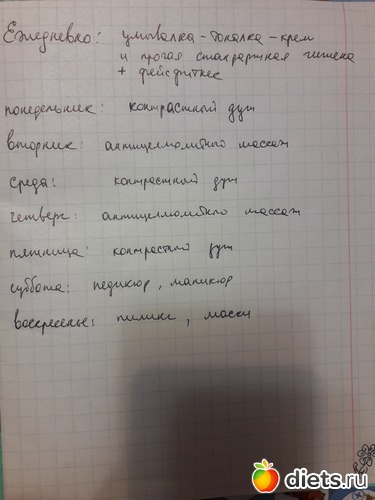 Ежедневно: умывалка - тонал​ка - крем
и прочая стандартная гигиена
+ фейсфитнес
понедельник: контрастный душ
вторник: антицеллюлитный массаж
среда: контрастный душ
четверг: антицеллюлитный массаж
пятница: контрастный душ
суббота: педикюр, маникюр
воскресенье: пилинг, маски
diets.ru